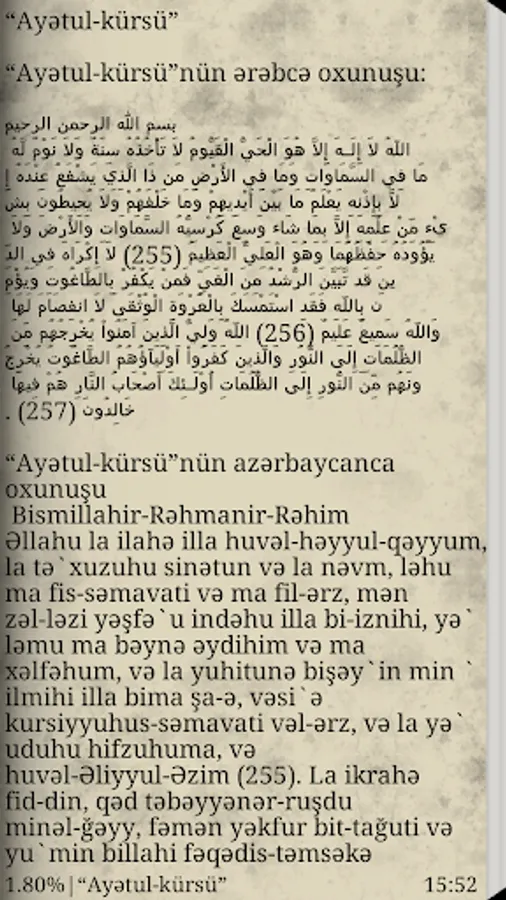 “Ayətul-kürsü”
“Ayətul-kürsü”nün ərəbcə oxunuşu:
بسم الله الرحمن الرحيم
اللّهُ لاَ إِلَـهَ إِلاَّ هُوَ الْحَيُّ الْقَيُّومُ لاَ تَأْخُذُهُ سِنَةٌ وَلاَ نَوْمٌ لَّهُ
مَا فِي السَّمَاوَاتِ وَمَا فِي الأَرْضِ مَن ذَا الَّذِي يَشْفَعُ عِنْدَهُ إِ
لاَّ بِإِذْنِهِ يَعْلَمُ مَا بَيْنَ أَيْدِيهِمْ وَمَا خَلْفَهُمْ وَلاَ يُحِيطُونَ بِشَ
يْءٍ مِّنْ عِلْمِهِ إِلاَّ بِمَا شَاء وَسِعَ كُرْسِيُّهُ السَّمَاوَاتِ وَالأَرْضَ وَلاَ
يَؤُودُهُ حِفْظُهُمَا وَهُوَ الْعَلِيُّ الْعَظِيمُ (255) لاَ إِكْرَاهَ فِي الدِّ
ينِ قَد تَّبَيَّنَ الرُّشْدُ مِنَ الْغَيِّ فَمَنْ يَكْفُرْ بِالطَّاغُوتِ وَيُؤْمِ
ن بِاللّهِ فَقَدِ اسْتَمْسَكَ بِالْعُرْوَةِ الْوُثْقَىَ لاَ انفِصَامَ لَهَا
وَاللّهُ سَمِيعٌ عَلِيمٌ (256) اللّهُ وَلِيُّ الَّذِينَ آمَنُواْ يُخْرِجُهُم مِّنَ
الظُّلُمَاتِ إِلَى النُّوُرِ وَالَّذِينَ كَفَرُواْ أَوْلِيَآؤُهُمُ الطَّاغُوتُ يُخْرِجُ
ونَهُم مِّنَ النُّورِ إِلَى الظُّلُمَاتِ أُوْلَـئِكَ أَصْحَابُ النَّارِ هُمْ فِيهَا
خَالِدُونَ (257) .
“Ayətul-kürsü”nün azərbaycanca
oxunuşu
Bismillahir-Rəhmanir-Rəhim
Əllahu la ilahə illa huvəl-həyyul-qəyyum,
la tə`xuzuhu sinətun və la nəvm, ləhu
ma fis-səmavati və ma fil-ərz, mən
zəl-ləzi yəşfə`u indəhu illa bi-iznihi, yə`
ləmu ma bəynə əydihim və ma
xəlfəhum, və la yuhitunə bişəy`in min `
ilmihi illa bima şa-ə, vəsi`ə
kursiyyuhus-səmavati vəl-ərz, və la yə`
uduhu hifzuhuma, və
huvəl-Əliyyul-Əzim (255). La ikrahə
fid-din, qəd təbəyyənər-ruşdu
minəl-ğəyy, fəmən yəkfur bit-tağuti və
yu`min billahi fəqədis-təmsəkə
1.80%|“Ayətul-kürsü” 15:52